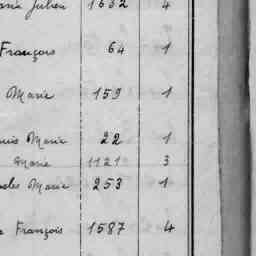 Julien 1632 4
François 64 1
Marie 159 1
Marie 22 1
Marie 1121 3
Marie 253 1
François 1587 4